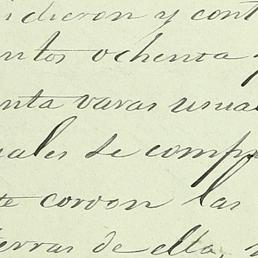 idieron y cont
entos ochenta y
enta varas usual
uales se compr
te corvon las
ierras de ella,